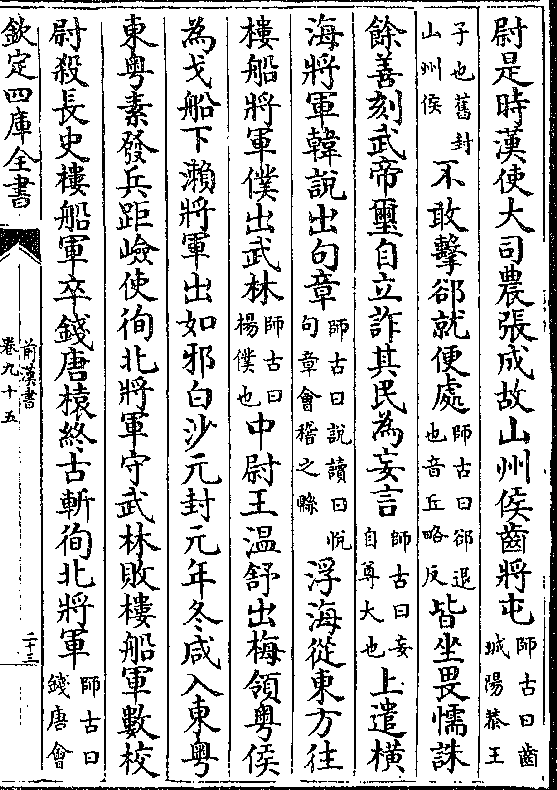 尉是時漢使大司農張成故山州侯齒將屯師古曰齒城陽恭王
子也舊封山州侯不敢擊郤就便處師古曰郤退也音丘略反皆坐畏懦誅
餘善刻武帝璽自立詐其民為妄言師古曰妄自尊大也上遣橫
海將軍韓說出句章師古曰說讀曰悅句章會稽之縣浮海從東方往
樓船將軍僕出武林師古曰楊僕也中尉王温舒出梅領粤侯
為戈船下瀨將軍出如邪白沙元封元年冬咸入東粤
東粤素發兵距嶮使徇北將軍守武林敗樓船軍數校
尉殺長史樓船軍卒錢唐榬終古斬徇北將軍師古曰錢唐會
欽定四庫全書
前漢書
卷九十五
二十三